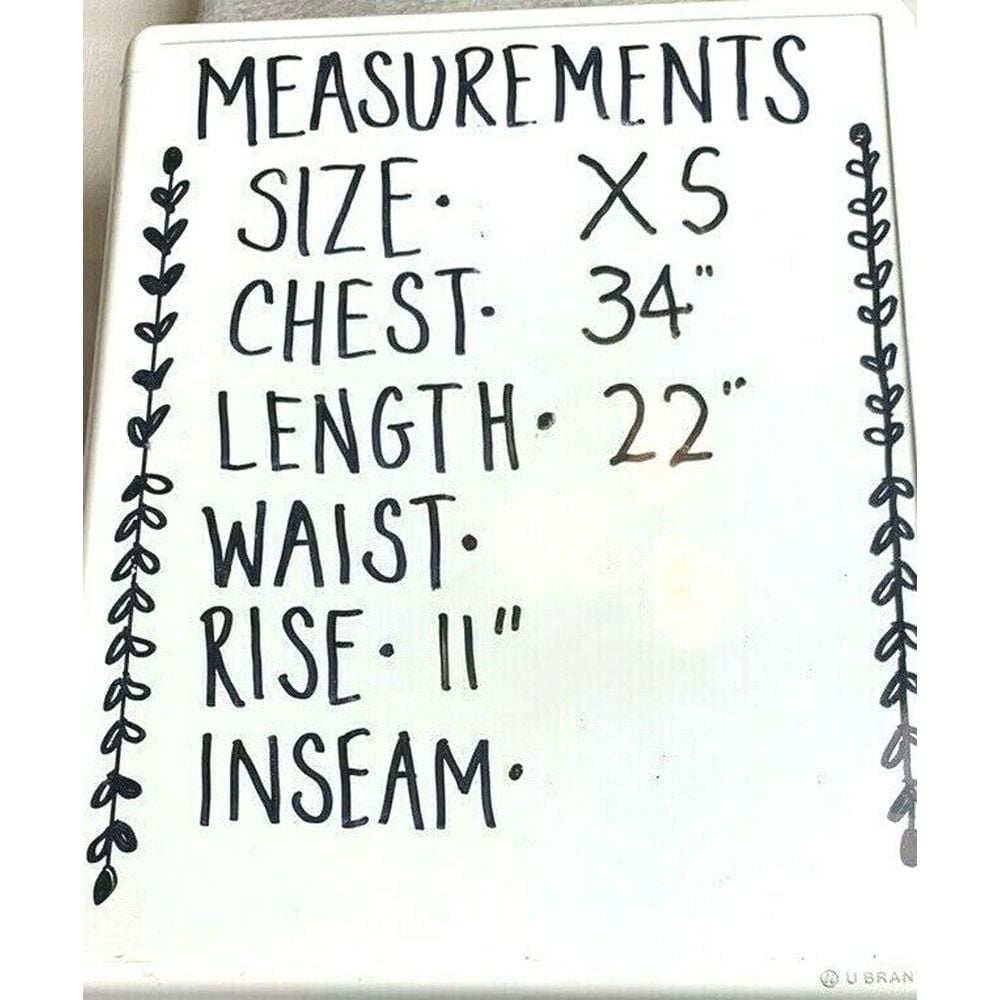 MEASUREMENTS
SIZE· XS
CHEST· 34"
LENGTH· 22"
WAIST·
RISE· 11"
INSEAM·
U BRAN